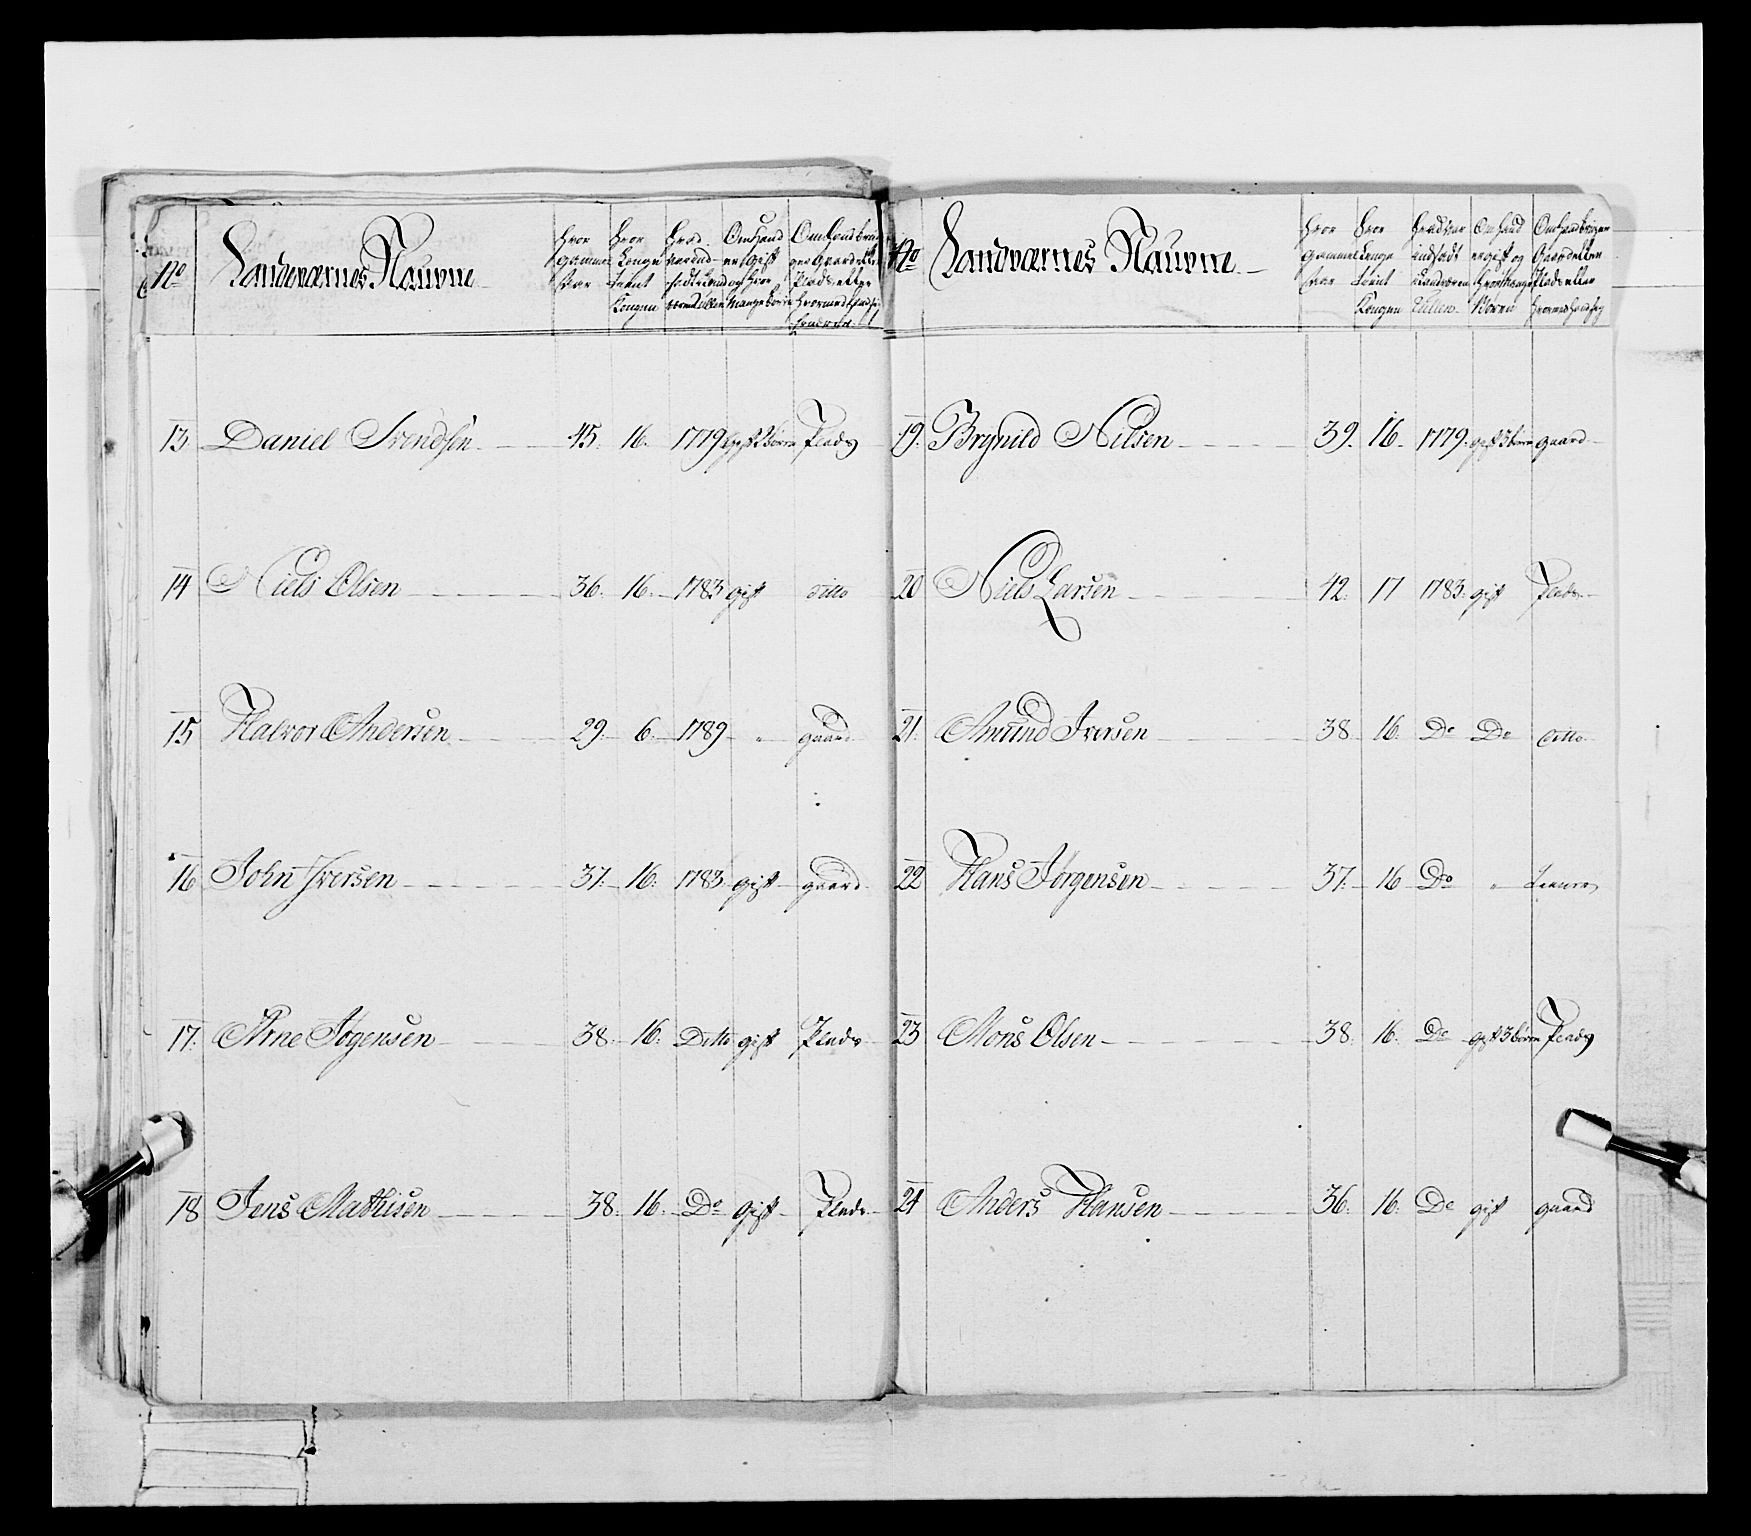 No
Landværnes Naufne
Hvor gammel
Hvor Længe tient Kongen
Hvad Aar indsadt i Landværnet
Om Hand er gift og Hvor Mange Børn
Om Hand bruger Gaard eller Plads eller Hvormed
13 Daniel Svendsen 45. 16. 1779 gift 2 børn Plads
14 Niels Olsen 36. 16. 1783 gift ditto
15 Halvor Andersen 29. 6. 1789 " gaard
16 John Iversen 37. 16. 1783 gift gaard
17. Arne Jøgensen 38. 16. Ditto gift Plads
18 Jens Mathisen 38. 16. Do gift Plads
No
Landværnes Naufne
Hvor gammel
Hvor Længe tient Kongen
Hvad Aar indsadt
Om Hand er gift og Hvor Mange Børn
Om Hand bruger Gaard eller Plads eller Hvormed
19. Brynild Nilsen 39. 16. 1779. gift 3 børn gaard
20 Niels Larsen 42. 17 1783. gift Plads
21. Amund Iversen 38. 16. Do Do ditto
22 Hans Jørgensen 37. 16 Do "
23 Mons Olsen 38. 16. Do gift 3 børn Plads
24 Anders Hansen 36. 16. Do gift gaard